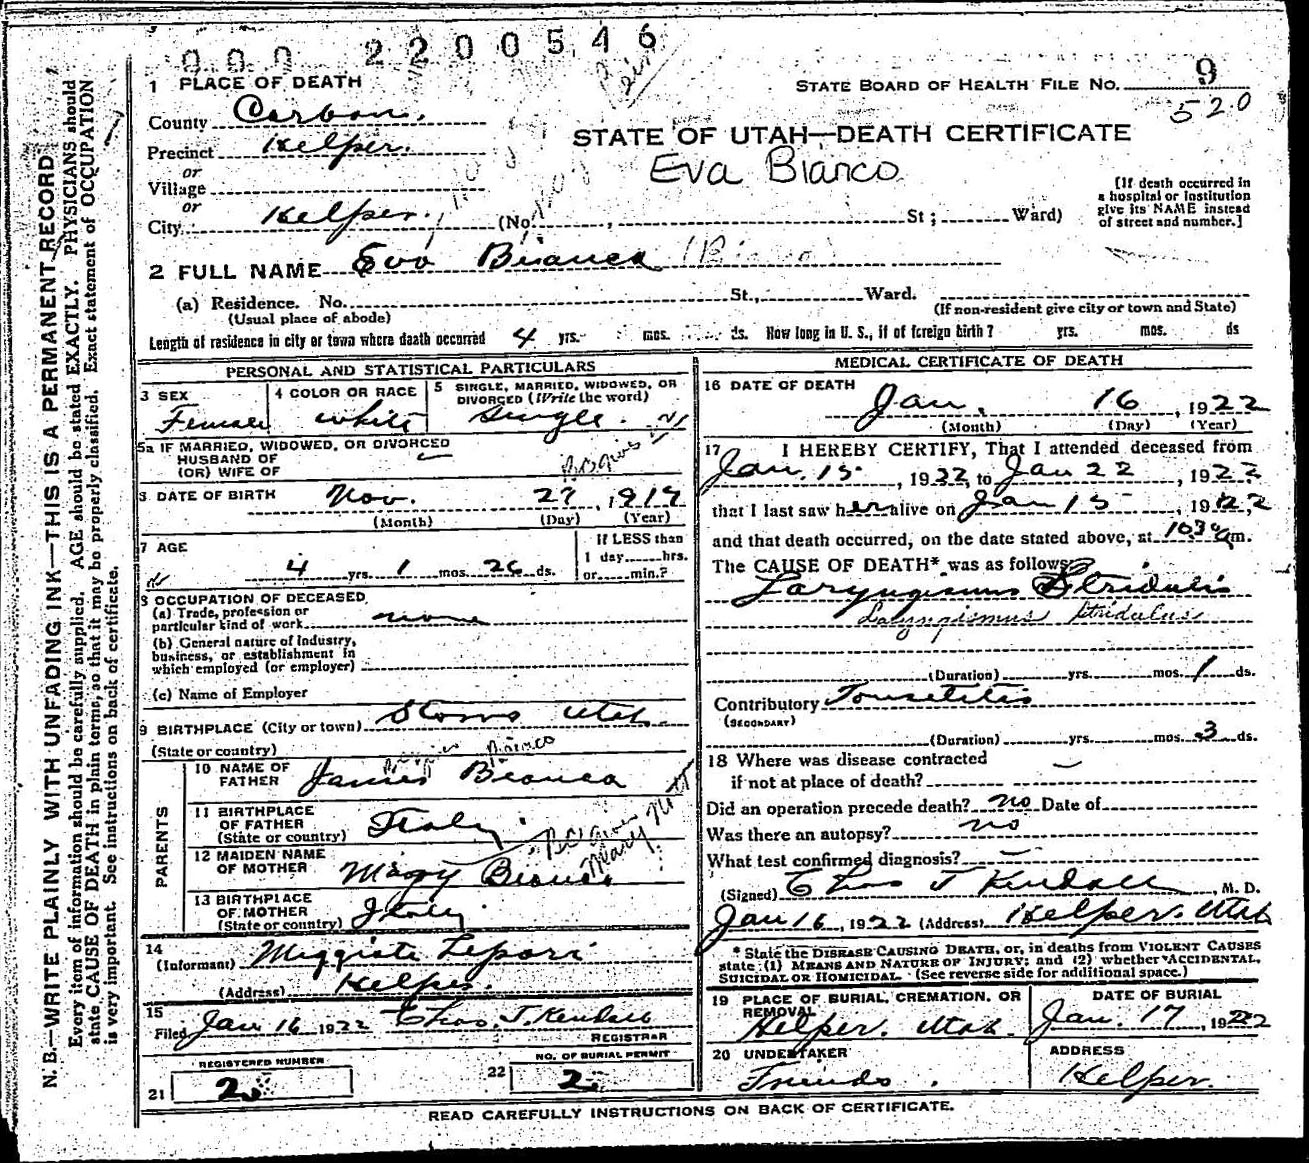 000 2200546
1 PLACE OF DEATH
STATE BOARD OF HEALTH FILE NO. 9
520
County Carbon.
STATE OF UTAH—DEATH CERTIFICATE
Precinct Helper.
Eva Bianco
or
Village
or
[If death occurred in
a hospital or institution
give its NAME instead
of street and number.]
City Helper. (No. , St ; Ward)
2 FULL NAME Eva Bianca (Bianco)
(a) Residence. No. St., Ward.
(Usual place of abode) (If non-resident give city or town and State)
Length of residence in city or town where death occurred 4 yrs. mos. ds. How long in U. S., if of foreign birth? yrs. mos. ds
PERSONAL AND STATISTICAL PARTICULARS
3 SEX
Female
4 COLOR OR RACE
White
5 SINGLE, MARRIED, WIDOWED, OR
DIVORCED (Write the word)
Single.
5a IF MARRIED, WIDOWED, OR DIVORCED
HUSBAND OF
(OR) WIFE OF
6 DATE OF BIRTH Nov. 27, 1917
(Month) (Day) (Year)
7 AGE
4 yrs. 1 mos. 26 ds.
If LESS than
1 day hrs.
or min.?
8 OCCUPATION OF DECEASED
(a) Trade, profession or
particular kind of work none
(b) General nature of industry,
business, or establishment in
which employed (or employer)
(c) Name of Employer
9 BIRTHPLACE (City or town) Storrs Utah
(State or country)
PARENTS
10 NAME OF
FATHER James Bianca
Bianco
11 BIRTHPLACE
OF FATHER
(State or country) Italy
12 MAIDEN NAME
OF MOTHER Mary Bianca
13 BIRTHPLACE
OF MOTHER
(State or country) Italy
14
(Informant) Miggiate Lepori
(Address) Helper.
15
Filed Jan 16 1922 Thos. J. Kendall
REGISTRAR
REGISTERED NUMBER
21 2
NO. OF BURIAL PERMIT
22 2
MEDICAL CERTIFICATE OF DEATH
16 DATE OF DEATH
Jan. 16, 1922
(Month) (Day) (Year)
17 I HEREBY CERTIFY, That I attended deceased from
Jan. 15, 1922, to Jan 22, 1922
that I last saw her alive on Jan 15 1922
and that death occurred, on the date stated above, at 1030 a m.
The CAUSE OF DEATH* was as follows:
Laryngismus Stridulis
Laryngismus Stridulus
(Duration) yrs. mos. 1 ds.
Contributory Tonselitis
(SECONDARY)
(Duration) yrs. mos. 3 ds.
18 Where was disease contracted
if not at place of death?
Did an operation precede death? no Date of
Was there an autopsy? no
What test confirmed diagnosis?
(Signed) Thos J Kendall, M. D.
Jan 16, 1922 (Address) Helper. Utah
* State the DISEASE CAUSING DEATH, or, in deaths from VIOLENT CAUSES
state (1) MEANS AND NATURE OF INJURY; and (2) whether ACCIDENTAL,
SUICIDAL OR HOMICIDAL. (See reverse side for additional space.)
19 PLACE OF BURIAL, CREMATION, OR
REMOVAL
Helper. Utah.
DATE OF BURIAL
Jan. 17, 1922
20 UNDERTAKER
Friends.
ADDRESS
Helper.
READ CAREFULLY INSTRUCTIONS ON BACK OF CERTIFICATE.
N. B.—WRITE PLAINLY WITH UNFADING INK—THIS IS A PERMANENT RECORD
Every item of information should be carefully supplied. AGE should be stated EXACTLY. PHYSICIANS should
state CAUSE OF DEATH in plain terms, so that it may be properly classified. Exact statement of OCCUPATION
is very important. See instructions on back of certificate.